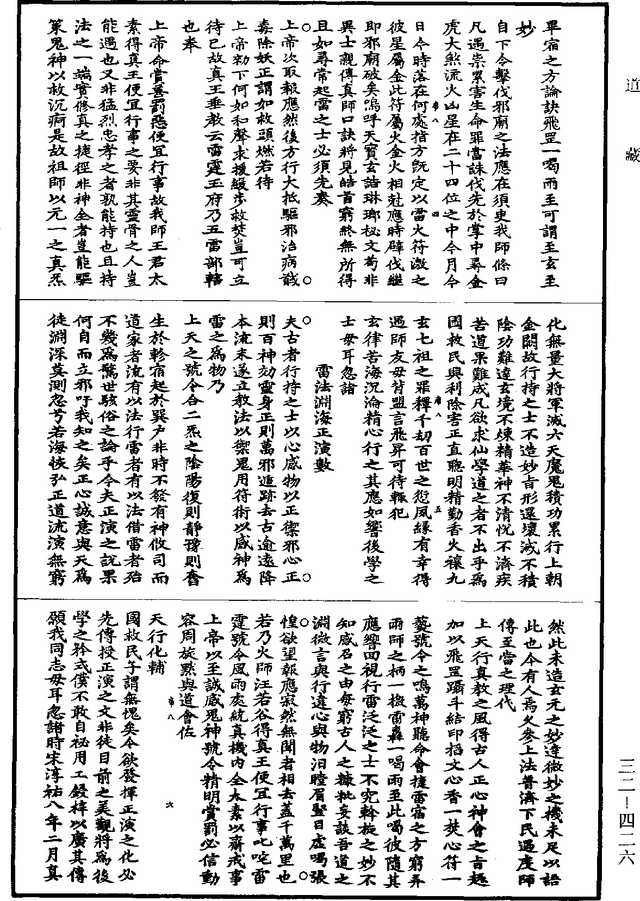 道藏
畢宿之方論訣飛罡一喝而至可謂至玄至
妙
自下令擊伐邪廟之法應在須臾我師條曰
凡過祟累害生命罪當誅伐先於掌中尋金
虎大煞流火凶星在二十四位之中今月令
日今時落在何處指方既定以雷火符激之
彼星屬金此符屬火金火相尅應時碎伐繼
即邪廟破矣嗚呼天寶玄誥琳琅祕文苟非
異士親傳真師口訣將見皓首窮然無所得
且如尋常起雷之士必須先奏
上帝次取報應然後方行大抵驅邪治病戩
毒除妖正謂如救頭燃若待
上帝勑下何如和聲求援緩步救焚豈可立
待已故真王垂教云雷霆玉府乃五雷部轄
也奉
上帝命賞善罰惡便宜行事故我師王君太
素得真王便宜行事之要非其靈骨之人豈
能遇也又非猛烈忠孝之者孰能持也且持
法之一端實修真之捷徑非神全者豈能驅
策鬼神以救沉痾是故祖師以元一之真炁
化無量大將軍滅六天魔鬼積功累行上朝
金闕故行持之士不造妙旨形還壞滅不積
陰功難達玄境不練精華神不清悅不濟疾
苦道果難成凡欲求仙學道之者不出乎為
國救民興利除害正直聰明精勤香火禳九
玄七祖之罪釋千劫百世之愆夙緣有幸得
遇師友毋背盟言飛昇可待輒犯
玄律苦海沉淪精心行之其應如響後學之
士毋耳忽諸
雷法淵海正演數
夫古者行持之士以心感物以正禦邪心正
則百神効靈身正則萬邪遁跡去古逾遠降
本流末遂立教法以禦鬼用符術以感神為
雷之為物乃
上天之號令合二炁之陰陽復則靜豫則奮
生於軫宿起於巽戶非時不發有神攸司而
道家者流有以法行雷者有以法借雷者殆
不幾為驚世駭俗之論乎今夫正演之說果
何自而立邪吁我知之矣正心誠意與天為
徒淵深莫測忽兮若海恢弘正道流演無窮
然此未造玄元之妙達微妙之機未足以語
此也今有人焉久參上法普濟下民過度師
傳至當之理代
上天行真教之風得古人正心神會之旨趣
加以飛罡躡斗結印掐文心香一焚心符一
爇號令之鳴萬神聽命會捷雷宿之方窮弄
雨師之柄一檄雷轟一喝雨至此喝彼隨其
應響回視行雷泛泛之士不究斡旋之妙不
知感召之由毋窮古人之糠粃妄談吾道之
淵微言與行違心與物汨瞠眉豎目虛喝張
惶欲望報應寂然無聞者相去蓋千萬里也
若乃火師汪若谷得真王便宜行事叱咤雷
霆號令風雨處統真機內全太素以齋戒事
上帝以至誠感鬼神號令精明賞罰必信動
容周旋默與道會佐
天行化輔
國救民予謂無愧矣今欲發揮正演之化必
先傳授正演之文非徒目前之美觀將為後
學之矜式僕不敢自祕用工鋟梓以廣其傳
願我同志毋耳忽諸時宋淳祐八年二月真
三二—四二六